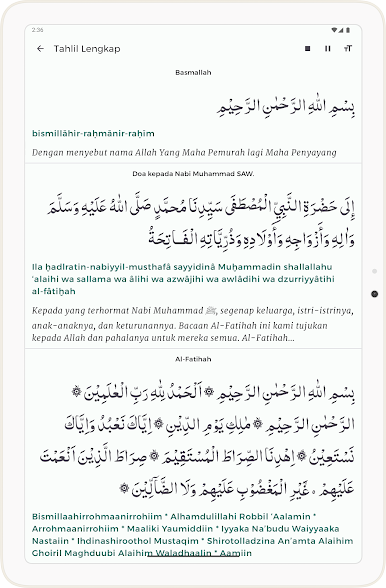 2:36
Tahlil Lengkap
Basmallah
بِسْمِ اللهِ الرَّحْمٰنِ الرَّحِيْمِ
bismillāhir-raḥmānir-raḥim
Dengan menyebut nama Allah Yang Maha Pemurah lagi Maha Penyayang
Doa kepada Nabi Muhammad SAW.
إِلَى حَضْرَةِ النَّبِيِّ الْمُصْطَفَى سَيِّدِنَا مُحَمَّدٍ صَلَّى اللهُ عَلَيْهِ وَسَلَّمَ
وَاٰلِهِ وَأَزْوَاجِهِ وَأَوْلَادِهِ وَذُرِّيَّاتِهِ الْفَــاتِحَةُ
Ila ḥadlratin-nabiyyil-musthafā sayyidinā Muḥammadin shallallahu
'alaihi wa sallama wa ālihi wa azwājihi wa awlādihi wa dzurriyyātihi
al-fātiḥah
Kepada yang terhormat Nabi Muhammad ﷺ, segenap keluarga, istri-istrinya,
anak-anaknya, dan keturunannya. Bacaan Al-Fatihah ini kami tujukan
kepada Allah dan pahalanya untuk mereka semua. Al-Fatihah...
Al-Fatihah
بِسْمِ اللهِ الرَّحْمٰنِ الرَّحِيْمِ ۞ اَلْحَمْدُ لِلّٰهِ رَبِّ الْعٰلَمِيْنَ ۞
الرَّحْمٰنِ الرَّحِيْمِ ۞ مٰلِكِ يَوْمِ الدِّيْنِ ۞ اِيَّاكَ نَعْبُدُ وَاِيَّاكَ
نَسْتَعِيْنُ ۞ اِهْدِنَا الصِّرَاطَ الْمُسْتَقِيْمَ ۞ صِرَاطَ الَّذِيْنَ اَنْعَمْتَ
عَلَيْهِمْ ە غَيْرِ الْمَغْضُوْبِ عَلَيْهِمْ وَلَا الضَّآلِّيْنَ ۞
Bismillaahirrohmaanirrohiim * Alhamdulillahi Robbil 'Aalamin *
Arrohmaanirrohiim * Maaliki Yaumiddiin * Iyyaka Na'budu Waiyyaaka
Nastaiin * Ihdinashiroothol Mustaqim * Shirotolladzina An'amta Alaihim
Ghoiril Maghduubi Alaihim Waladhaalin * Aamiin